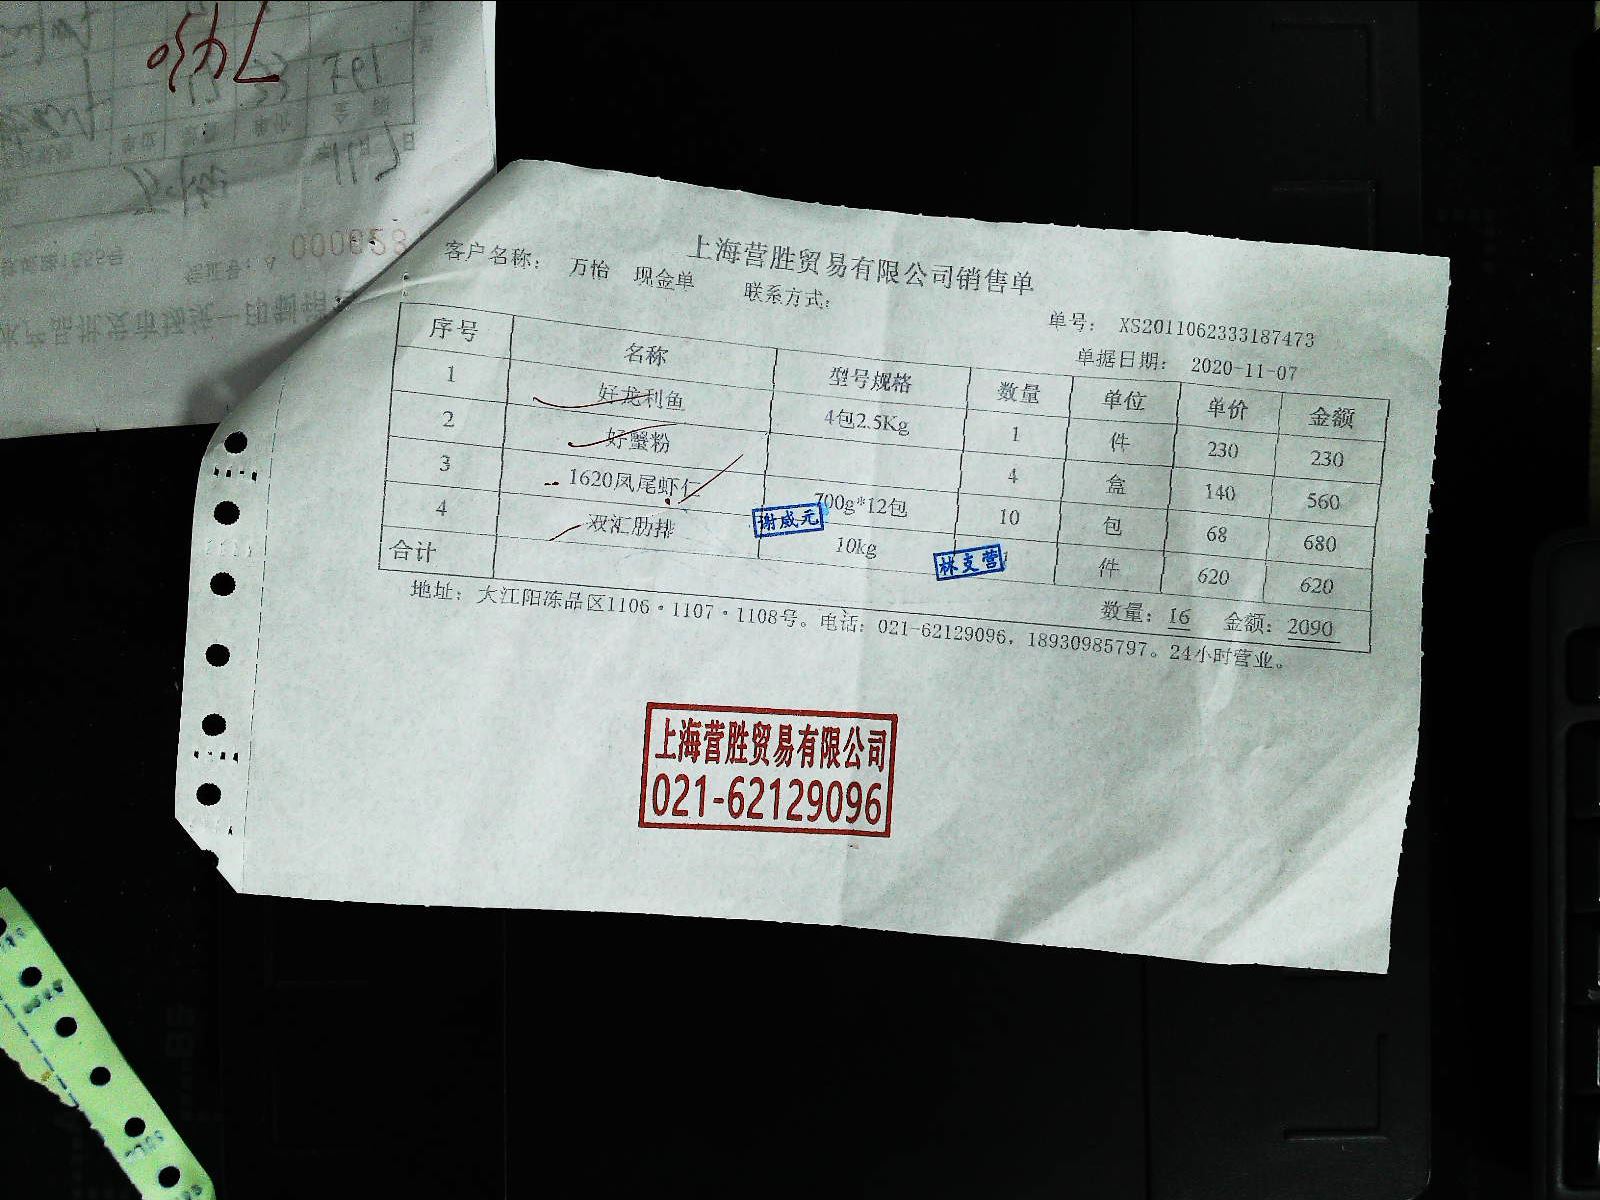 上海营胜贸易有限公司销售单
客户名称： 万怡 现金单 联系方式：
单号： XS2011062333187473
单据日期： 2020-11-07
序号 名称 型号规格 数量 单位 单价 金额
1 好龙利鱼 4包2.5Kg 1 件 230 230
2 好蟹粉 4 盒 140 560
3 1620凤尾虾仁 700g*12包 10 包 68 680
4 双汇肋排 10kg 1 件 620 620
合计 数量：16 金额：2090
地址： 大江阳冻品区1106·1107·1108号。电话：021-62129096，18930985797。24小时营业。
谢威元
林支营
上海营胜贸易有限公司
021-62129096
000623
7450
197